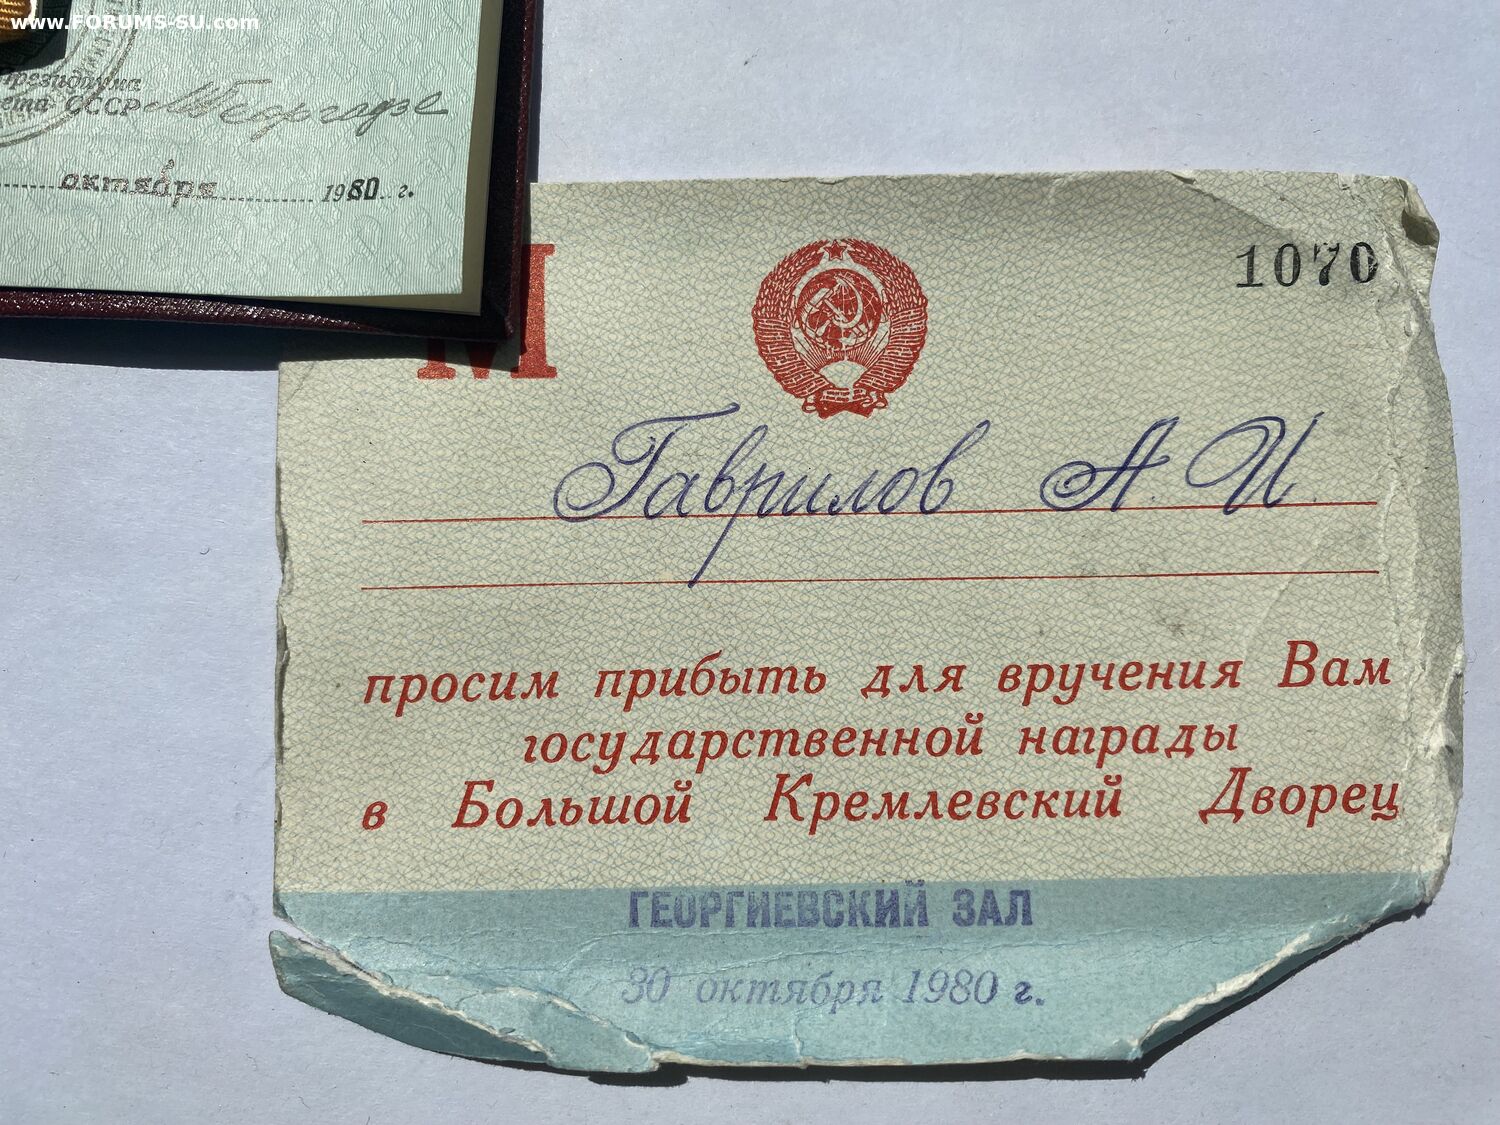 www.FORUMS-SU.com
Президиума
СССР МГеоргадзе
октября 1980 г.
М
1070
Гаврилов А. И.
просим прибыть для вручения Вам
государственной награды
в Большой Кремлевский Дворец
ГЕОРГИЕВСКИЙ ЗАЛ
30 октября 1980 г.